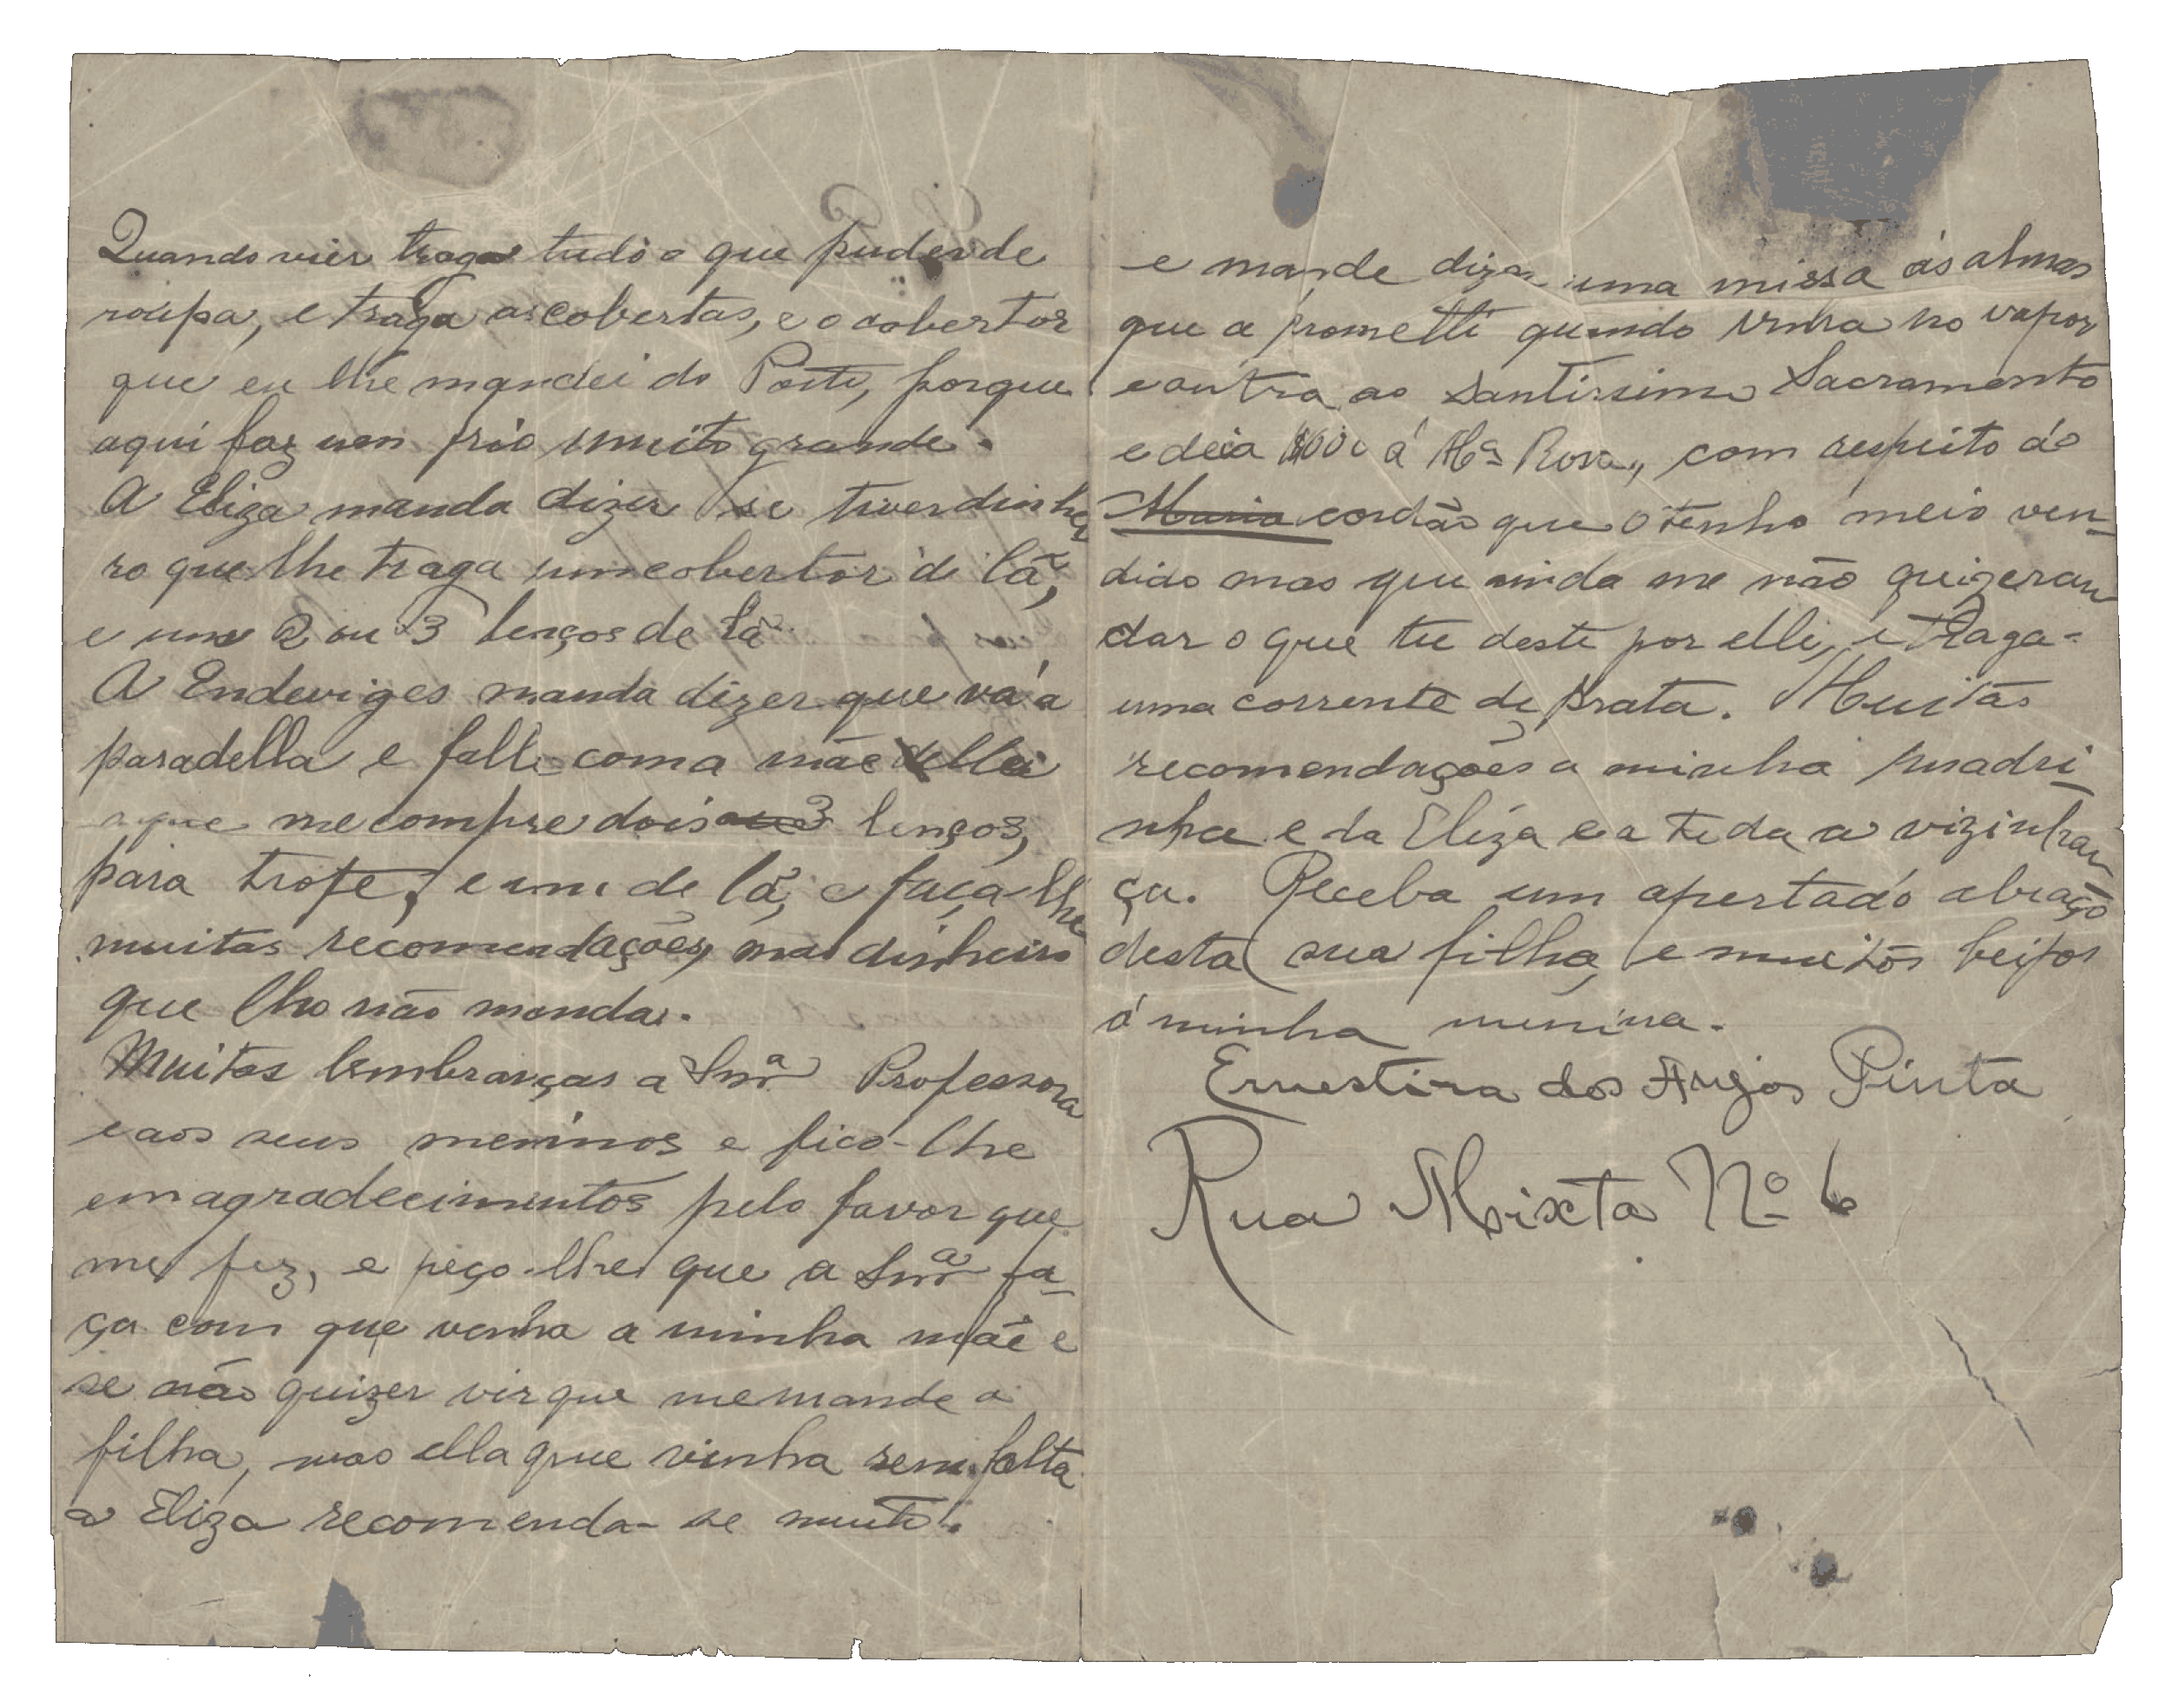 Quando vier traga tudo o que puder de
roupa, e traga as cobertas, e o cobertor
que eu lhe mandei do Porto, porque
aqui faz um frio muito grande.
A Eliza manda dizer se tiver dinhei
ro que lhe traga um cobertor de lã,
e uns 2 ou 3 lenços de lã
A Endeviges manda dizer que vá a
paradella e falle com a mãe della
e que me compre dois ou 3 lenços,
para trofe, e um de lã, e faça-lhe
muitas recomendações, mas dinheiro
que lho não manda.
Muitas lembranças a Snrª Professora
e aos seus meninos e fico-lhe
em agradecimentos pelo favor que
me fez, e peço-lhe que a Snrª fa-
ça com que venha a minha mãe e
se não quizer vir que me mande a
filha, mas ella que vinha sem falta
a Eliza recomenda-se muito.
e mande dizer uma missa ás almas
que a prometti quando vinha no vapor
e outra ao Santissimo Sacramento
e deia á Mª Rosa, com respeito ao
Maria cordão que o tenho meio ven-
dido mas que ainda me não quizeram
dar o que tu deste por elle, e traga-
uma corrente de prata. Muitas
recomendações a minha madri-
nha e da Eliza e a toda a vizinhan
ça. Receba um apertado abraço
desta sua filha, e muitos beijos
á minha menina.
Ernestina dos Anjos Pinta
Rua Mixta Nº 6